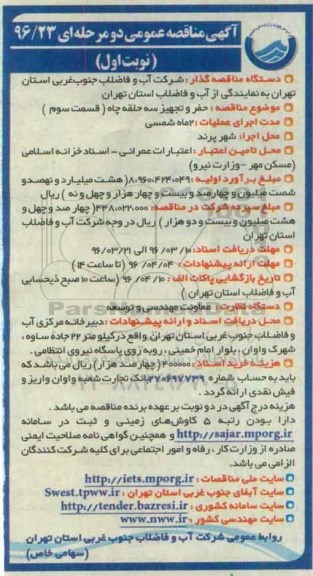 آگهی مناقصه عمومی دو مرحله ای ۹۶/۲۳
(نوبت اول)
دستگاه مناقصه گذار : شرکت آب و فاضلاب جنوب غربی استان
تهران به نمایندگی از آب و فاضلاب استان تهران
موضوع مناقصه : حفر و تجهیز سه حلقه چاه ( قسمت سوم )
مدت اجرای عملیات : ۲ماه شمسی
محل اجرا: شهر پرند
محل تامین اعتبار : اعتبارات عمرانی - اسناد خزانه اسلامی
(مسکن مهر - وزارت نیرو)
مبلغ برآورد اولیه : ۸،۹۶۰،۴۲۴،۰۴۹( هشت میلیارد و نهصدو
شصت میلیون و چهارصد و بیست و چهار هزار و چهل و نه ) ریال
مبلغ سپرده شرکت در مناقصه: ۴۴۸،۰۲۲،۰۰۰( چهارصد و چهل و
هشت میلیون و بیست و دو هزار ) ریال در وجه شرکت آب و فاضلاب
استان تهران
مهلت دریافت اسناد: ۹۶/۰۳/۱۰ الی ۹۶/۰۳/۲۱
مهلت ارائه پیشنهادات: ۹۶/۰۴/۰۴ (تا ساعت ۱۴)
تاریخ بازگشایی پاکات الف : ۹۶/۰۴/۱۰ (ساعت ۱۰ صبح ذیحسابی
آب و فاضلاب استان تهران )
دستگاه نظارت : معاونت مهندسی و توسعه
محل دریافت اسناد و ارائه پیشنهادات : دبیرخانه مرکزی آب
و فاضلاب جنوب غربی استان تهران واقع در کیلومتر ۲۲ جاده ساوه ،
شهرک واوان ، بلوار امام خمینی ، روبه روی پاسگاه نیروی انتظامی .
هزینه خرید اسناد : ۴۰۰۰۰۰( چهارصد هزار) ریال می باشد که
باید به حساب شماره ۲۷۰۶۹۷۷۳۹ بانک تجارت شعبه واوان واریز و
فیش نقدی ارائه گردد .
هزینه درج آگهی در دو نوبت بر عهده برنده مناقصه می باشد .
دارا بودن رتبه ۵ کاوش های زمینی و ثبت در سامانه
http://sajar.mporg.ir و همچنین گواهی نامه صلاحیت ایمنی
صادره از وزارت کار ، رفاه و امور اجتماعی برای کلیه شرکت کنندگان
الزامی می باشد.
سایت ملی مناقصات : http://iets.mporg.ir
سایت آبفای جنوب غربی استان تهران : Swest.tpww.ir
سایت سامانه کشوری : http://tender.bazresi.ir
سایت مهندسی کشور : www.nww.ir
روابط عمومی شرکت آب و فاضلاب جنوب غربی استان تهران
(سهامی خاص)